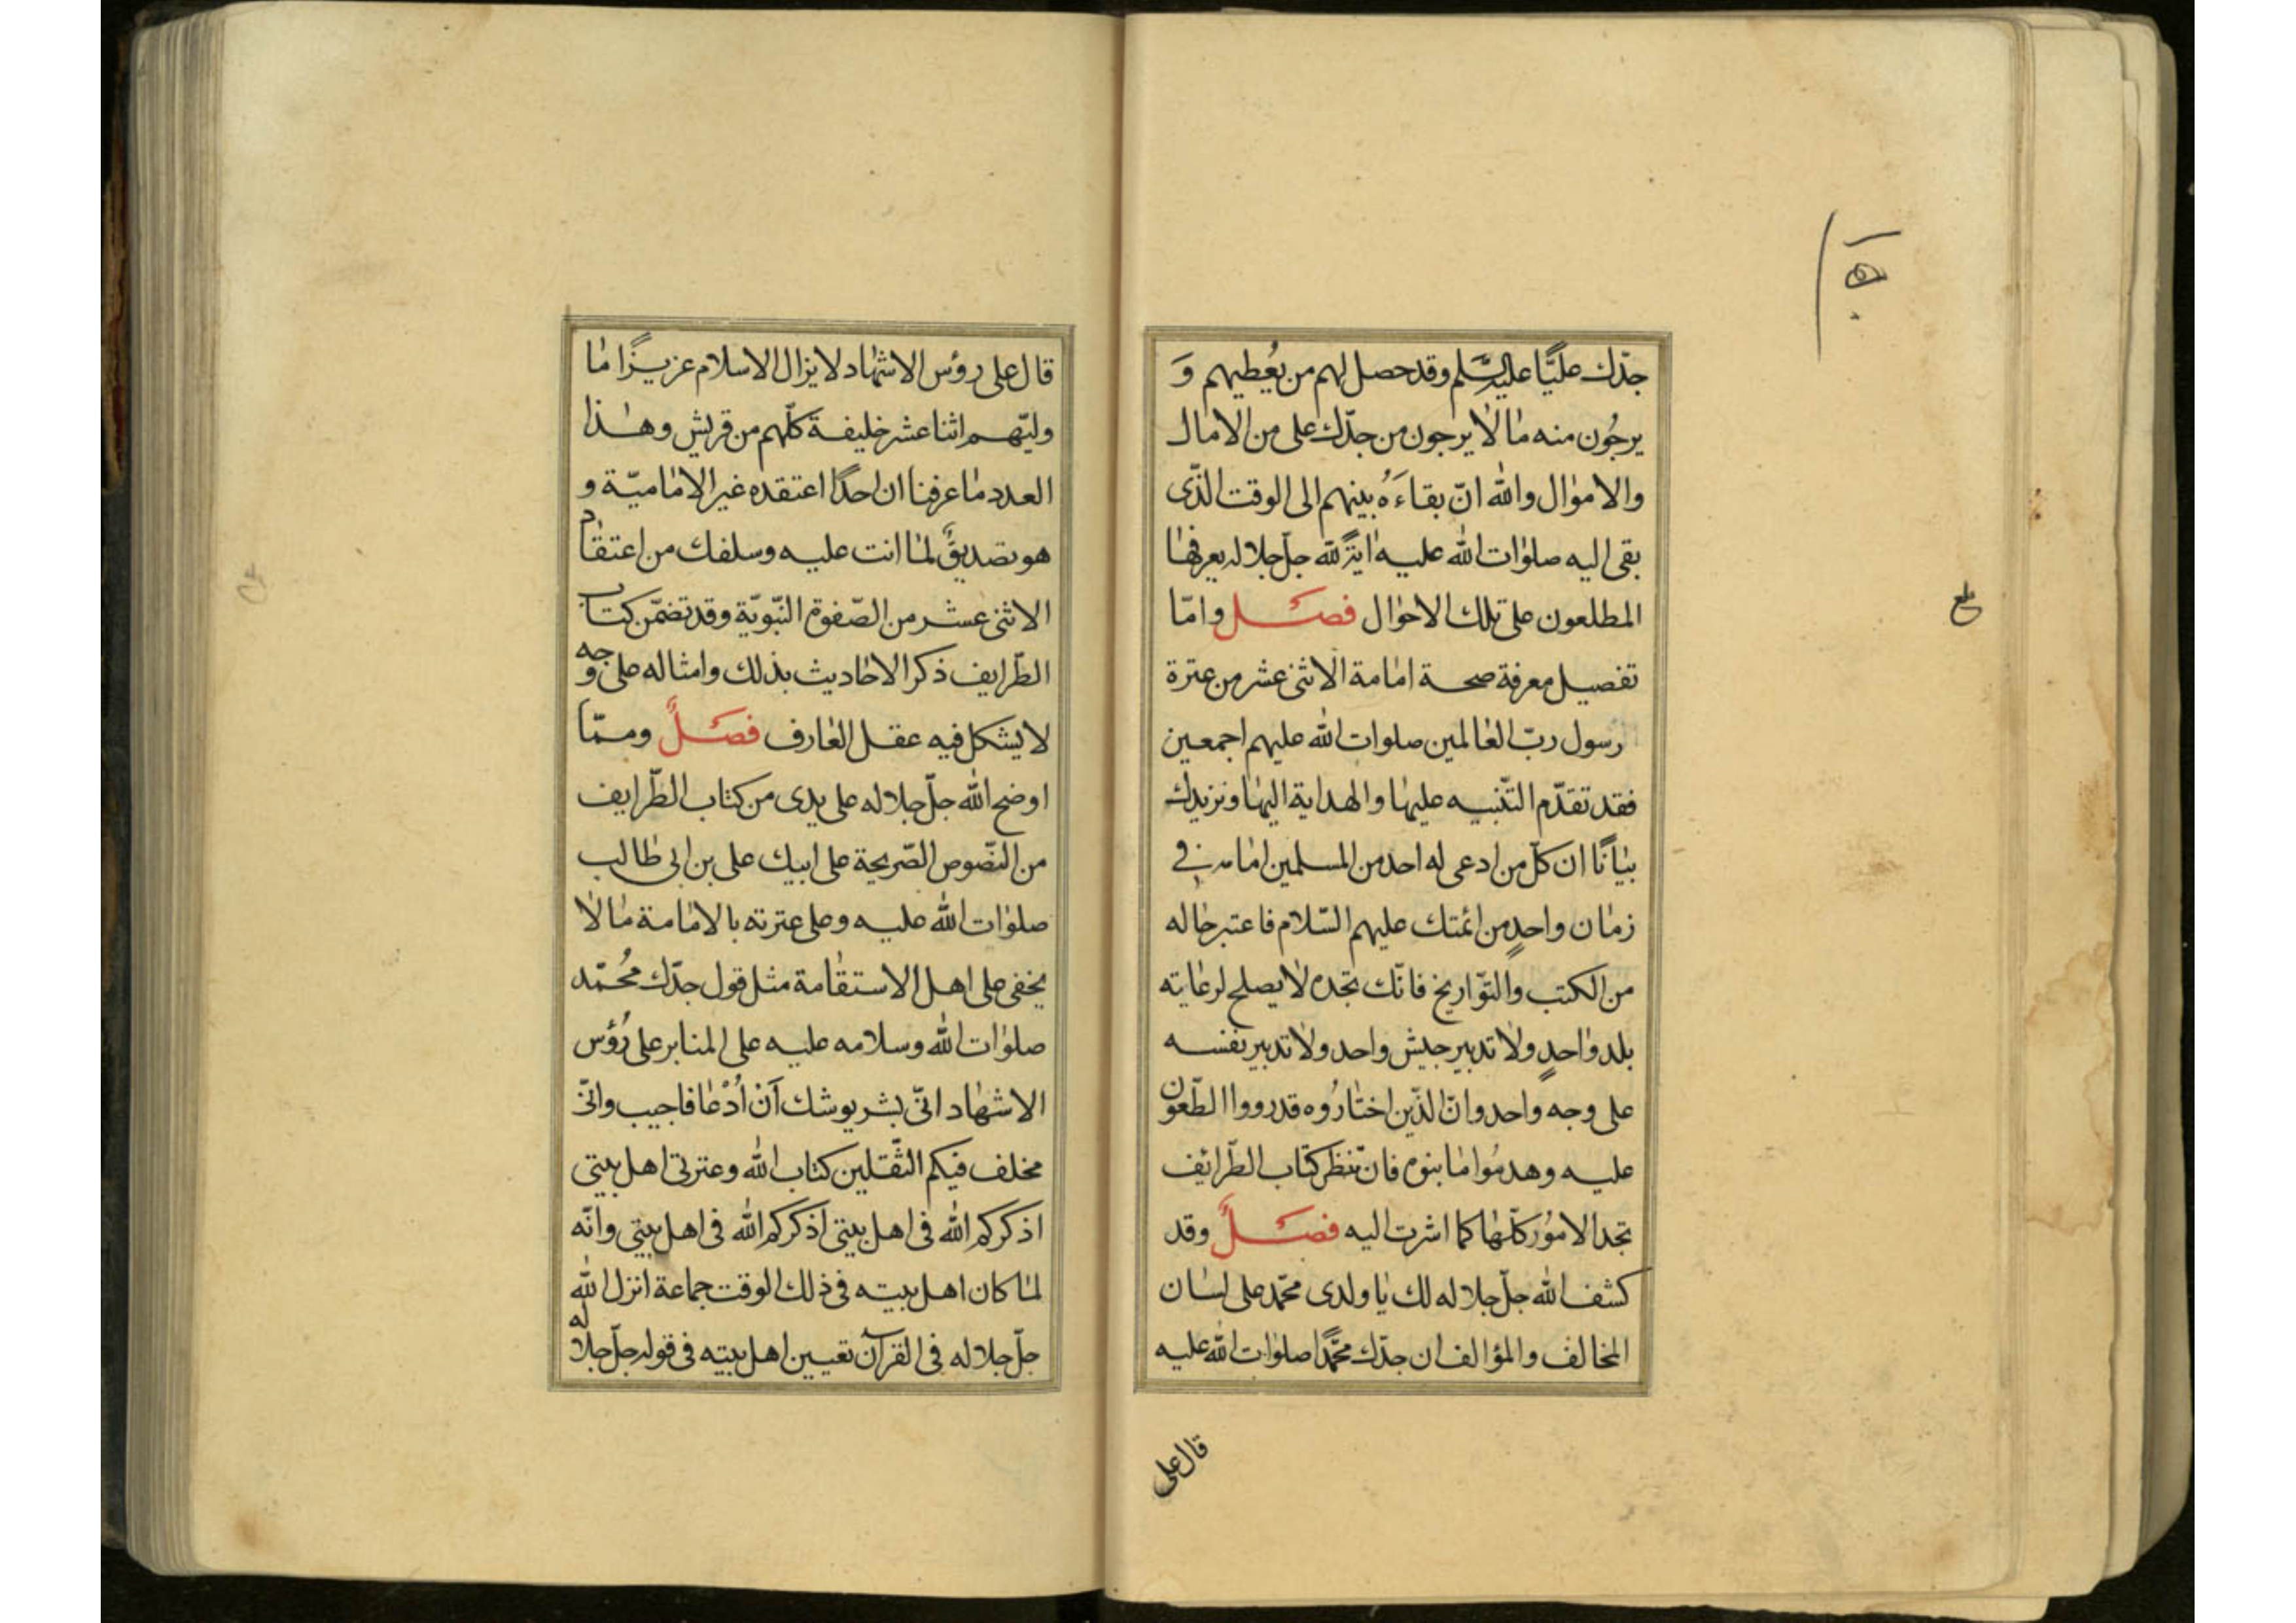 جدّك عليًّا عليه السّلم وقد حصل لهم من يُعطيهم وَ
يرجُون منه ما لا يرجون من جدّك على من الامال
والاموال والله انّ بقاءَهُ بينهم الى الوقت الذّى
بقى اليه صلوات الله عليه اية لله جلّ جلاله يعرفها
المطلعون على تلك الاحوال فصل وامّا
تفصيل معرفة صحة امامة الاثنى عشر من عترة
رسول ربّ العالمين صلوات الله عليهم اجمعين
فقد تقدّم التّنبيه عليها والهداية اليها ونزيدك
بيانًا ان كلّ من ادعى له احد من المسلمين امامه فى
زمان واحدٍ من ائمتك عليهم السّلام فاعتبر حاله
من الكتب والتّواريخ فانّك تجده لا يصلح لرعايته
بلد واحدٍ ولا تدبير جيش واحد ولا تدبير نفسه
على وجه واحد وانّ الذّين اختارُوه قد رووا الطّعون
عليه وهدمُوا ما بنوه فان تنظر كتاب الطّرائف
تجد الامُور كلّها كما اشرت اليه فصلٌ وقد
كشف الله جلّ جلاله لك يا ولدى محمّد على لسان
المخالف والمؤالف ان جدّك محمّدًا صلوات الله عليه
قال على
بلغ
قال على رؤس الاشهاد لا يزال الاسلام عزيزًا ما
وليّهم اثنا عشر خليفة كلّهم من قريش وهذا
العدد ما عرفنا ان احدًا اعتقده غير الاماميّة و
هو تصديقٌ لما انت عليه وسلفك من اعتقاد
الاثنى عشر من الصّفوة النّبويّة وقد تضمّن كتاب
الطّرايف ذكر الاحاديث بذلك وامثاله على وجه
لا يشكل فيه عقل العارف فصلٌ وممّا
اوضح الله جلّ جلاله على يدى من كتاب الطّرايف
من النّصوص الصّريحة على ابيك على بن ابى طالب
صلوات الله عليه وعلى عترته بالامامة ما لا
يخفى على اهل الاستقامة مثل قول جدّك مُحمّد
صلوات الله وسلامه عليه على المنابر على رُؤس
الاشهاد انّى بشر يوشك اَنْ اُدْعا فاجيب وانّى
مخلف فيكم الثّقلين كتاب الله وعترتى اهل بيتى
اذكركم الله فى اهل بيتى اذكركم الله فى اهل بيتى وانّه
لما كان اهل بيته فى ذلك الوقت جماعة انزل الله
جلّ جلاله فى القرآن تعيين اهل بيته فى قوله جلّ جلاله